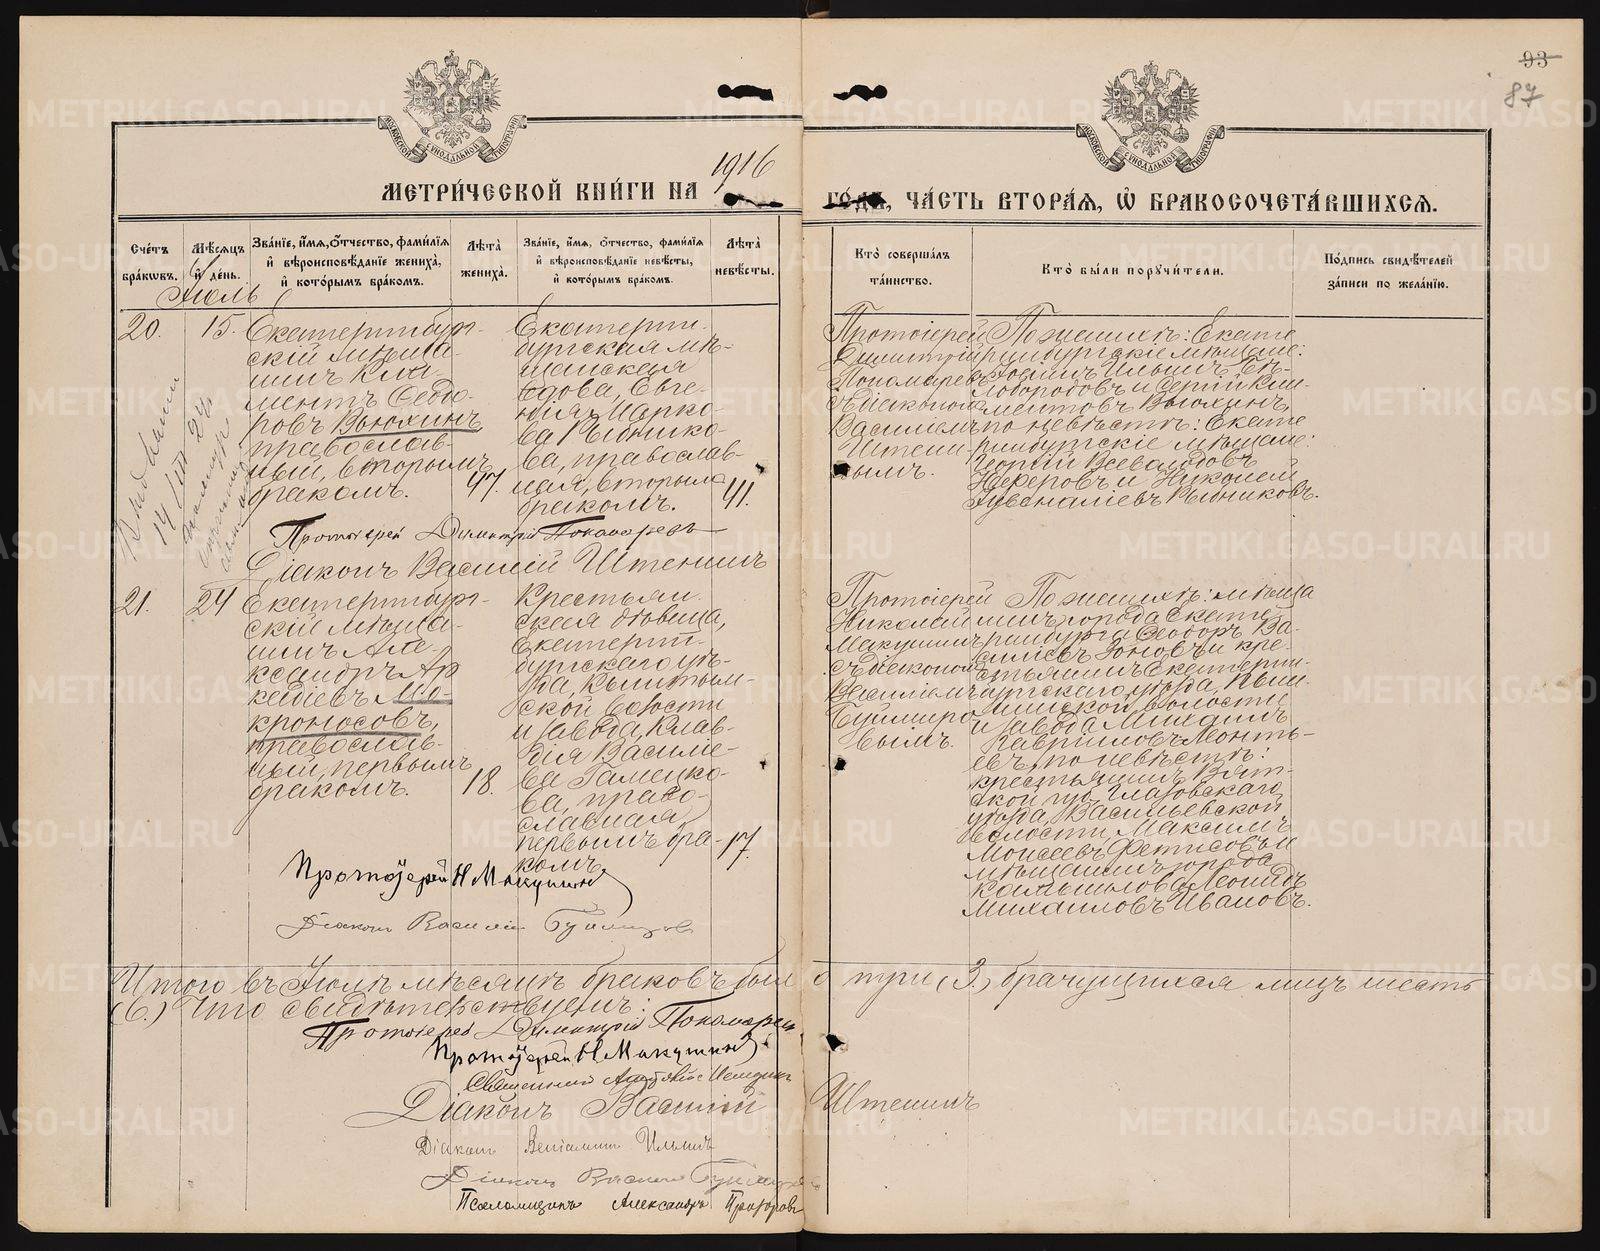 93
87
МЕТРИ́ЧЕСКОЙ КНИ́ГИ НА 1916 ГО́ДЪ, ЧА́СТЬ ВТОРА́Я, Ѡ҆ БРАКОСОЧЕТА́ВШИХСѦ.
Сче́тъ бра́кѡвъ.
Мѣ́сяцъ и҆ де́нь.
Зва́нїе, и҆́мя, ѻ҆́тчество, фами́лїя и҆ вѣроисповѣ́данїе жениха̀, и҆ кото́рымъ бра́комъ.
Лѣта̀ жениха̀.
Зва́нїе, и҆́мя, ѻ҆́тчество, фами́лїя и҆ вѣроисповѣ́данїе невѣ́сты, и҆ кото́рымъ бра́комъ.
Лѣта̀ невѣ́сты.
Кто̀ соверша́лъ та́инство.
Кто̀ бы́ли порꙋчи́тели.
По́дпись свидѣ́телей за́писи по жела́нїю.
Іюль
20.
15.
Екатеринбург-
скій мѣща-
нинъ Кли-
ментъ Ѳеодо-
ровъ Вьюхинъ
православ-
ный, вторымъ
бракомъ.
47.
Екатерин-
бургская мѣ-
щанская
вдова, Евге-
нія Марко-
ва Рыбнико-
ва, православ-
ная, вторымъ
бракомъ.
41.
Протоіерей
Димитрій
Пономаревъ
съ діакономъ
Василіемъ
Штени-
нымъ.
По женихѣ: Екате
ринбургскіе мѣщане:
Іосифъ Ильинъ Бѣ-
лобородовъ и Сергій Кли-
ментовъ Вьюхинъ,
по невѣстѣ: Екате
ринбургскіе мѣщане:
Георгій Всеволодовъ
и Николай
Ювеналіевъ Рыбниковъ.
Протоіерей Димитрій Пономаревъ
Діаконъ Василій Штенинъ
21.
24
Екатеринбург-
скій мѣща-
нинъ Але-
ксандръ Ар
кадіевъ Мо-
кроносовъ,
православ-
ный, первымъ
бракомъ.
18.
Крестьян-
ская дѣвица,
Екатерин-
бургскаго уѣ-
зда, Пышмин-
ской волости
и завода, Клав-
дія Василіе-
ва
ва, право-
славная,
первымъ бра-
комъ.
17.
Протоіерей
Николай
Макушинъ
съ діакономъ
Василіемъ
Буймиро
вымъ.
По женихѣ: мѣща
нинъ города Екате
ринбурга Ѳеодоръ Ва-
силіевъ Іоновъ и кре-
стьянинъ Екатерин-
бургскаго уѣзда, Пыш-
минской волости
и завода Михаилъ
Гавріиловъ Леонть-
евъ, по невѣстѣ:
крестьянинъ Вят-
ской губ. Глазовскаго
уѣзда, Васильевской
волости, Максимъ
Моисеевъ Фетисовъ и
мѣщанинъ города
Камышлова Леонидъ
Михаиловъ Ивановъ.
Протоіерей Н Макушинъ
Діаконъ Василій Буймировъ
Итого въ Іюлѣ мѣсяцѣ браковъ было три (3) брачущихся лицъ шесть
(6.) Что свидѣтельствуемъ:
Протоіерей Димитрій Пономаревъ
Протоіерей Н Макушинъ
Священникъ
Діаконъ Василій Штенинъ
Діаконъ Веніаминъ Ильинъ
Діаконъ Василій Буймировъ
Псаломщикъ Александръ